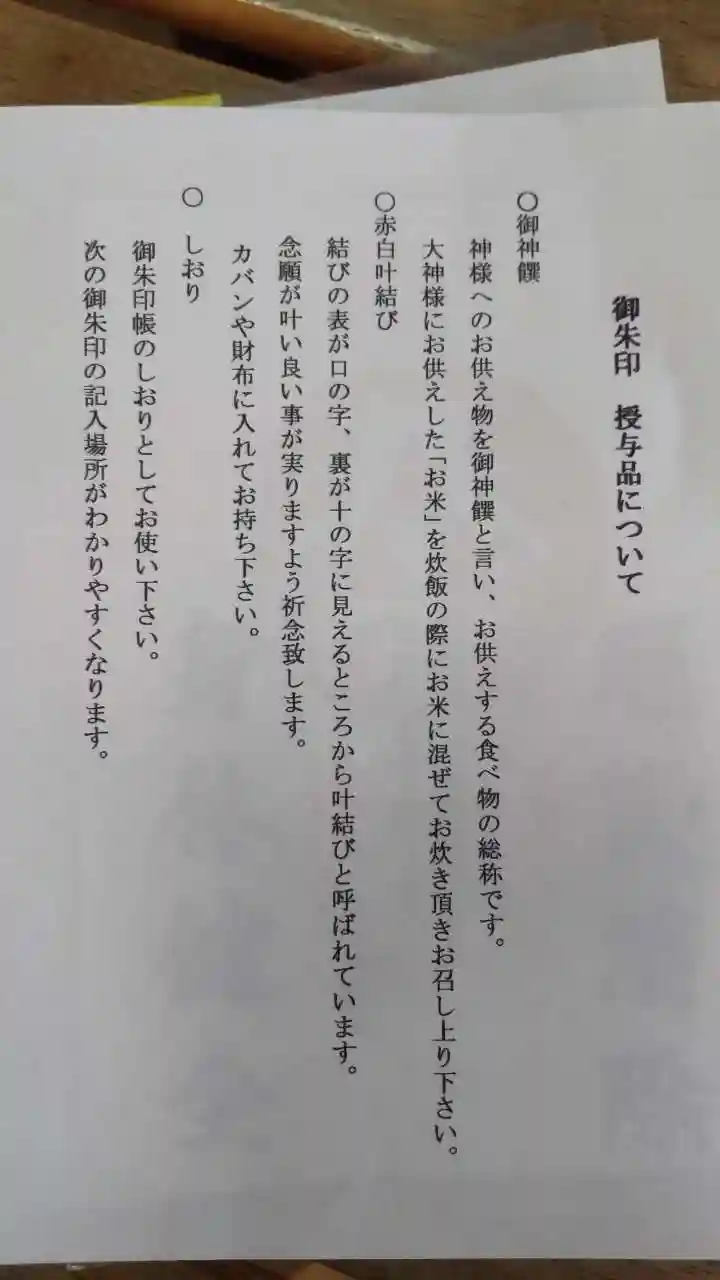 御朱印　授与品について
〇御神饌
神様へのお供え物を御神饌と言い、お供えする食べ物の総称です。
大神様にお供えした「お米」を炊飯の際にお米に混ぜてお炊き頂きお召し上り下さい。
〇赤白叶結び
結びの表が口の字、裏が十の字に見えるところから叶結びと呼ばれています。
念願が叶い良い事が実りますよう祈念致します。
カバンや財布に入れてお持ち下さい。
〇　しおり
御朱印帳のしおりとしてお使い下さい。
次の御朱印の記入場所がわかりやすくなります。